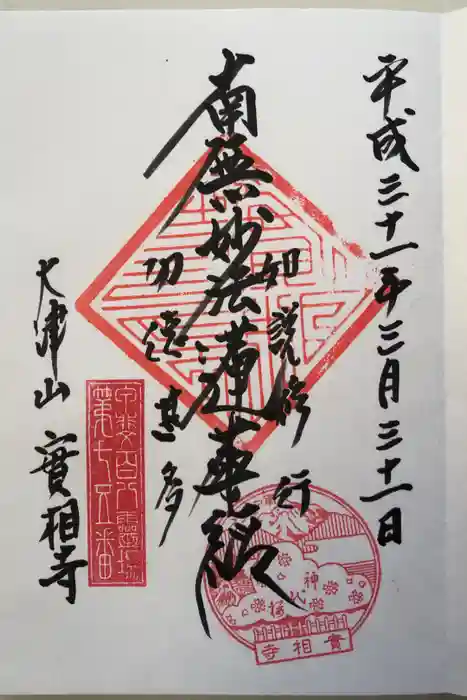 平成三十一年三月三十一日
如説修行
南無妙法蓮華経
功徳甚多
大津山
實相寺
宗門史跡
第七五番
神代桜
實相寺